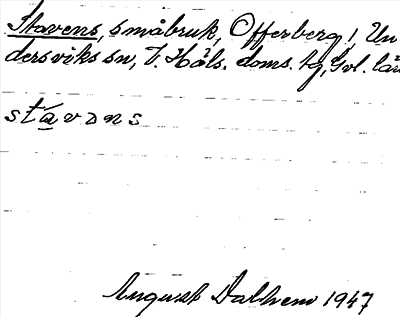 Stavens, småbruk, Offerberg, Un
dersviks sn, V. Häls. doms. tg, Gvl. län
stavəns
August Dalhem 1947